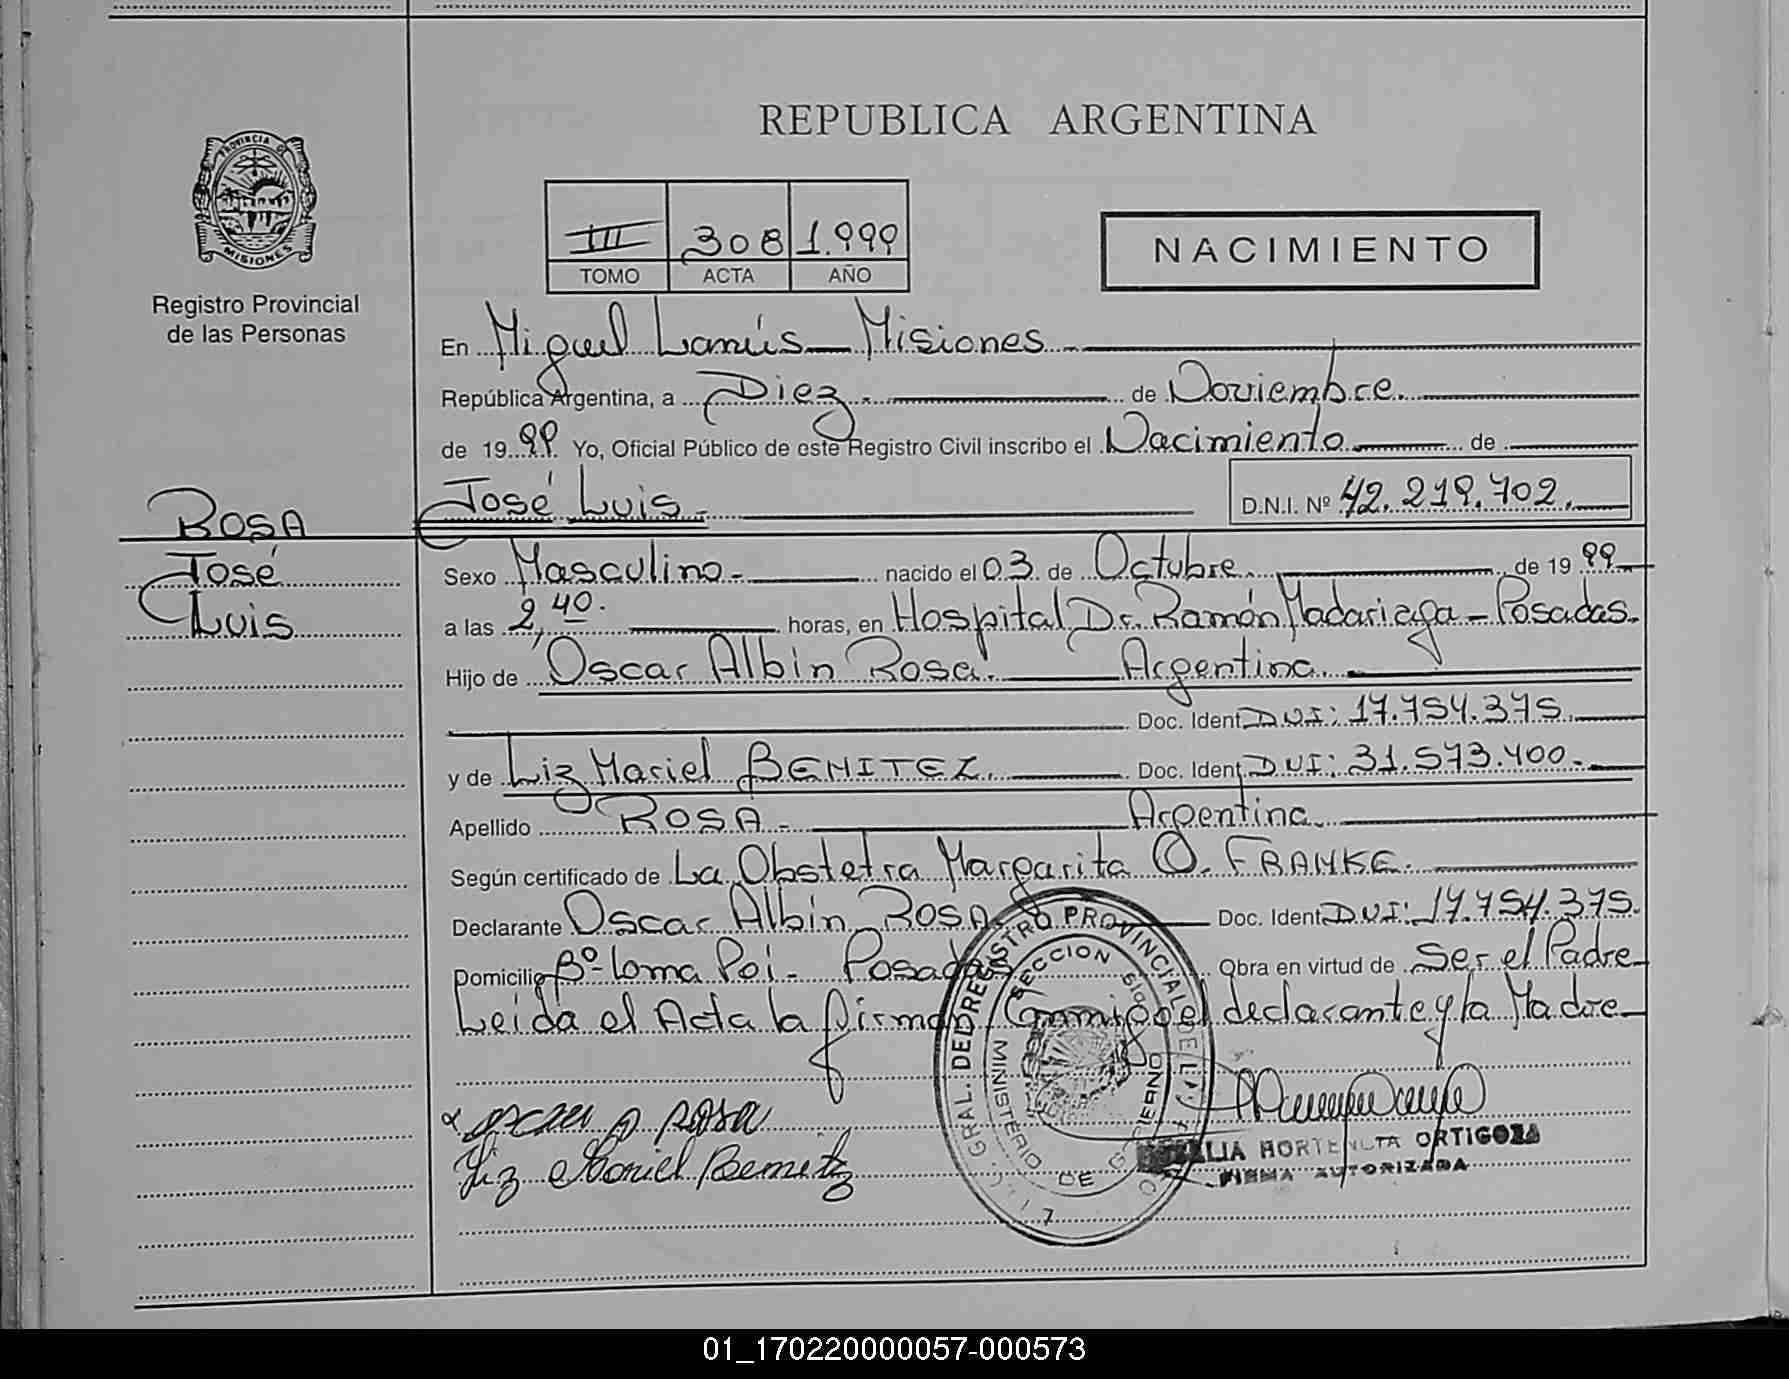 REPUBLICA ARGENTINA
PROVINCIA DE
MISIONES
Registro Provincial
de las Personas
III 308 1.999
TOMO ACTA AÑO
NACIMIENTO
En Miguel Lanús - Misiones.-
República Argentina, a Diez.- de Noviembre.
de 1999. Yo, Oficial Público de este Registro Civil inscribo el Nacimiento de
José Luis.- D.N.I. Nº 42.219.702.
ROSA
José
Luis
Sexo Masculino.- nacido el 03 de Octubre. de 1999
a las 2,40. horas, en Hospital Dr. Ramón Madariaga - Posadas.
Hijo de Oscar Albin Rosa. Argentina.
Doc. Ident. DNI: 17.754.375.
y de Liz Mariel BENITEZ. Doc. Ident. DNI: 31.573.400.-
Apellido ROSA.- Argentina.
Según certificado de La Obstetra Margarita O. FRANKE.
Declarante Oscar Albin ROSA Doc. Ident. DNI: 17.754.375.
Domicilio Bº Loma Poi - Posadas Obra en virtud de Ser el Padre
Leída el Acta la firman Conmigo el declarante y la Madre
Oscar A Rosa
Liz Mariel Benitez
REGISTRO PROVINCIAL DE
SECCION
MINISTERIO DE GOBIERNO
ORTIGOZA
FIRMA AUTORIZADA
01_170220000057-000573